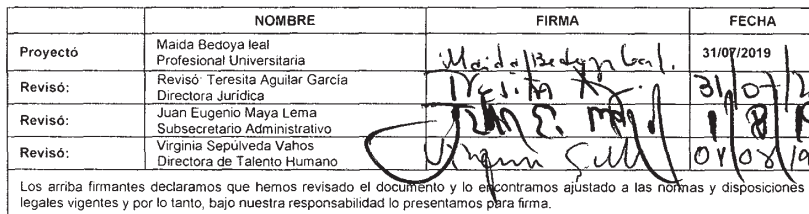 NOMBRE FIRMA FECHA
Proyectó Maida Bedoya leal
Profesional Universitaria Maida Bedoya Leal. 31/07/2019
Revisó: Revisó: Teresita Aguilar García
Directora Jurídica 31/07/
Revisó: Juan Eugenio Maya Lema
Subsecretario Administrativo 1 8
Revisó: Virginia Sepúlveda Vahos
Directora de Talento Humano 01/08/19
Los arriba firmantes declaramos que hemos revisado el documento y lo encontramos ajustado a las normas y disposiciones
legales vigentes y por lo tanto, bajo nuestra responsabilidad lo presentamos para firma.